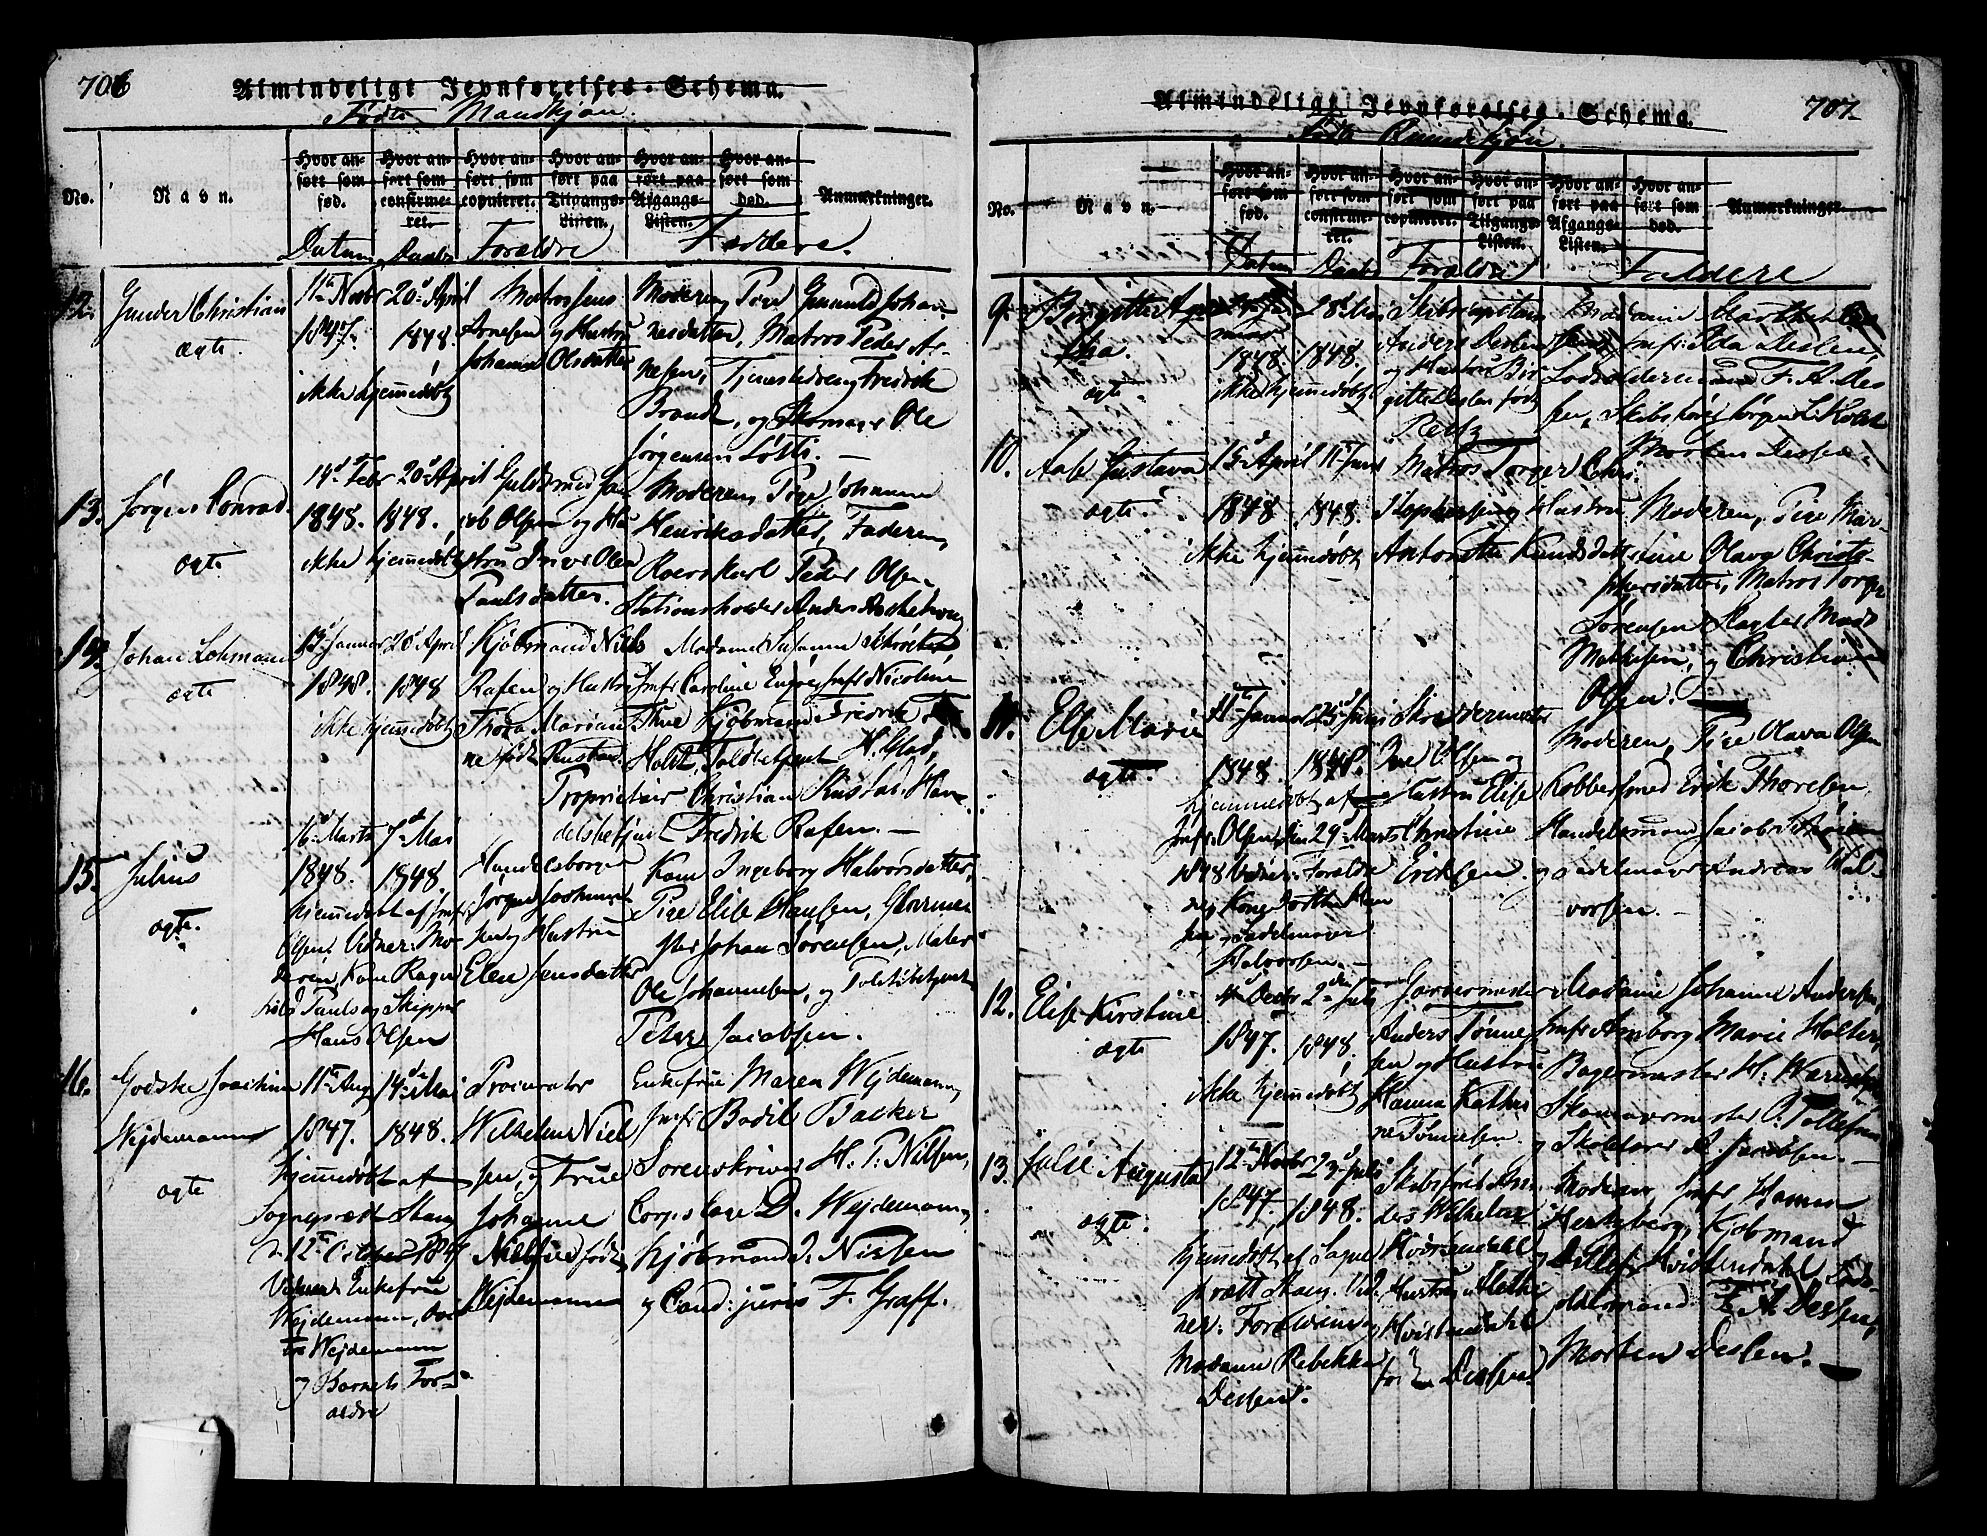 706
Almindeligt Jevnførelses-Schema.
Fødte Mandkjøn.
No.
Navn.
Hvor anført som fød.
Hvor anført som confirmeret.
Hvor anført som copuleret.
Hvor anført paa Tilgangs-Listen.
Hvor anført paa Afgangs-Listen.
Hvor anført som død.
Anmærkninger.
Datum Daabs Forældre Faddere.
12. Gunder Christian
ægte.
11te Novbr
1847.
20d April
1848.
ikke hjemmedøbt
Matros Jens
Arnesen og Hustru
Johanne Olsdatter
Moderen, Pige Gunnild Johan-
nesdatter, Matros Peder Ar-
nesen, Tjenestedreng Fredrik
Brandt, og Skomager Ole
Jørgensen
13. Jørgen Conrad.
ægte
14d Febr
1848.
20d April
1848.
ikke hjemmedøbt
Guldsmed Ja-
cob Olsen og Hu-
stru Olea
Paulsdatter.
Moderen, Pige Johanne
Henriksdatter, Faderen,
Roerskarl Peder Olsen
Stationsholder Anders
14. Johan Lohmann
ægte
12 Januar
1848.
20d April
1848
ikke hjemmedøbt
Kjøbmand Niels
Rafen og Hustru
Marian-
ne født
Madame Susanne
Jmfr Caroline Jmfr Nicoline
Kjøbmand Fredrik
Holst, Toldbetjent H. Glad,
Proprietair Christian Han-
delsbetjent Fredrik Rafen. —
15. Julius
ægte.
16d Marts
1848.
7d Mai
1848.
hjemmedøbt af Jmfr
Olsen, Vidner: Mo-
deren, Kone Ragn-
hild Pauls og Skipper
Hans Olsen
Handelsborger
Jørgen Jochum-
sen og Hustru
Elen Jensdatter
Kone Ingeborg Halvorsdatter,
Pige Elise Hansen, Glarme-
ster Johan Sørensen, Maler
Ole Johannesen, og Toldbetjent
Peter Jacobsen.
16. Godske Joachim
Wejdemann
ægte
11te Aug
1847.
14de Mai
1848.
hjemmedøbt af
Sogneprest Stang
d. 12te October 1847
Vidner: Enkefrue
Wejdemann, Doc-
tor Wejdemann
og Barnets For-
ældre
Procurator
Wilhelm Niel-
sen, og Frue
Johanne
Nielsen født
Wejdemann
Enkefrue Maren Wejdemann,
Jmfr Bodil Backer
Sorenskriver H. P. Nilsen,
Corpslæge D. Wejdemann,
Kjøbmand J. Nielsen
og Cand: juris F. Graff.
707.
Almindeligt Jevnførelses-Schema.
Fødte Qvindekjøn.
No.
Navn.
Hvor anført som fød.
Hvor anført som confirmeret.
Hvor anført som copuleret.
Hvor anført paa Tilgangs-Listen.
Hvor anført paa Afgangs-Listen.
Hvor anført som død.
Anmærkninger.
Datum Daabs Forældre Faddere
9. Birgitte
ægte
1848.
28d Mai
1848.
ikke hjemmedøbt
Skibscapitain
Anders Dessen
og Hustru Bir-
gitte Dessen født
Madame Marthe
Jmfr: Ida Dessen,
Lodsoldermand F. A. Des-
sen, Skibsfører Jørgen
Morten Dessen
10. Aase Gustava
ægte.
15d April
1848
11te Juni
1848.
ikke hjemmedøbt
Matros Torger Chri-
stophersen og Hustru
Antonette Knudsdatter
Moderen, Pige Mar-
tine Olava Christo-
phersdatter, Matros Torger
Sørensen Slagter Mads
Mathisen, og Christian
Olsen.
11. Else Marie
ægte.
11te Januar
1848.
25d Juni
1848.
hjemmedøbt af
Jmfr: Olsen den 29de Marts
1848 Vidner: Foræld-
re, Kone Dorthe Han-
sen og Sadelmager
Halvorsen.
Skræddermester
Iver Olsen og
Hustru Elise
Christine
Eriksen
Moderen, Pige Olava Olsen
Kobbersmed Erik Thoresen,
Handelsmand Jacob
og Sadelmager Andreas Hal-
vorsen. —
12. Elise Kirstine
ægte
4de Decbr
1847.
2den Juli
1848.
ikke hjemmedøbt
Garvermester
Anders Tønne-
sen og Hustru
Hanna Kathri-
ne Tønnesen.
Madame Johanne Andersen,
Jmfr Amborg Marie Holter,
Bagermester H.
Skomagermester O. Tollefsen
og Skoleholder A. Jacobsen. —
13. Julie Augusta
ægte.
12te Novbr
1847.
23d Juli
1848.
hjemmedøbt af Sogne-
præst Stang. Vid-
ner: Forældrene og
Madame Rebekka
Dessen.
Skibsfører An-
ders Wilhelm
Hvistendahl
og Hustru Mathi-
Hvistendahl
født Dessen
Moderen, Jmfr Hanna
Hertzberg, Kjøbmand
Ditlef Hvistendahl Lods-
oldermand F. A. Dessen,
Morten Dessen.